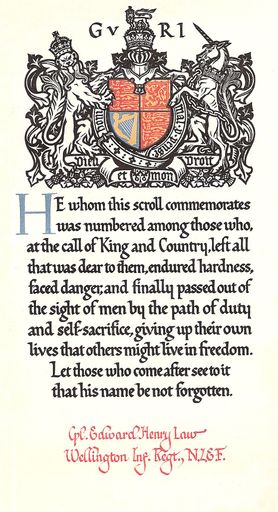 GV RI
Dieu et mon Droit
HE whom this scroll commemorates
was numbered among those who,
at the call of King and Country, left all
that was dear to them, endured hardness,
faced danger, and finally passed out of
the sight of men by the path of duty
and self-sacrifice, giving up their own
lives that others might live in freedom.
Let those who come after see to it
that his name be not forgotten.
Cpl. Edward Henry Law
Wellington Inf. Regt., N.Z.E.F.